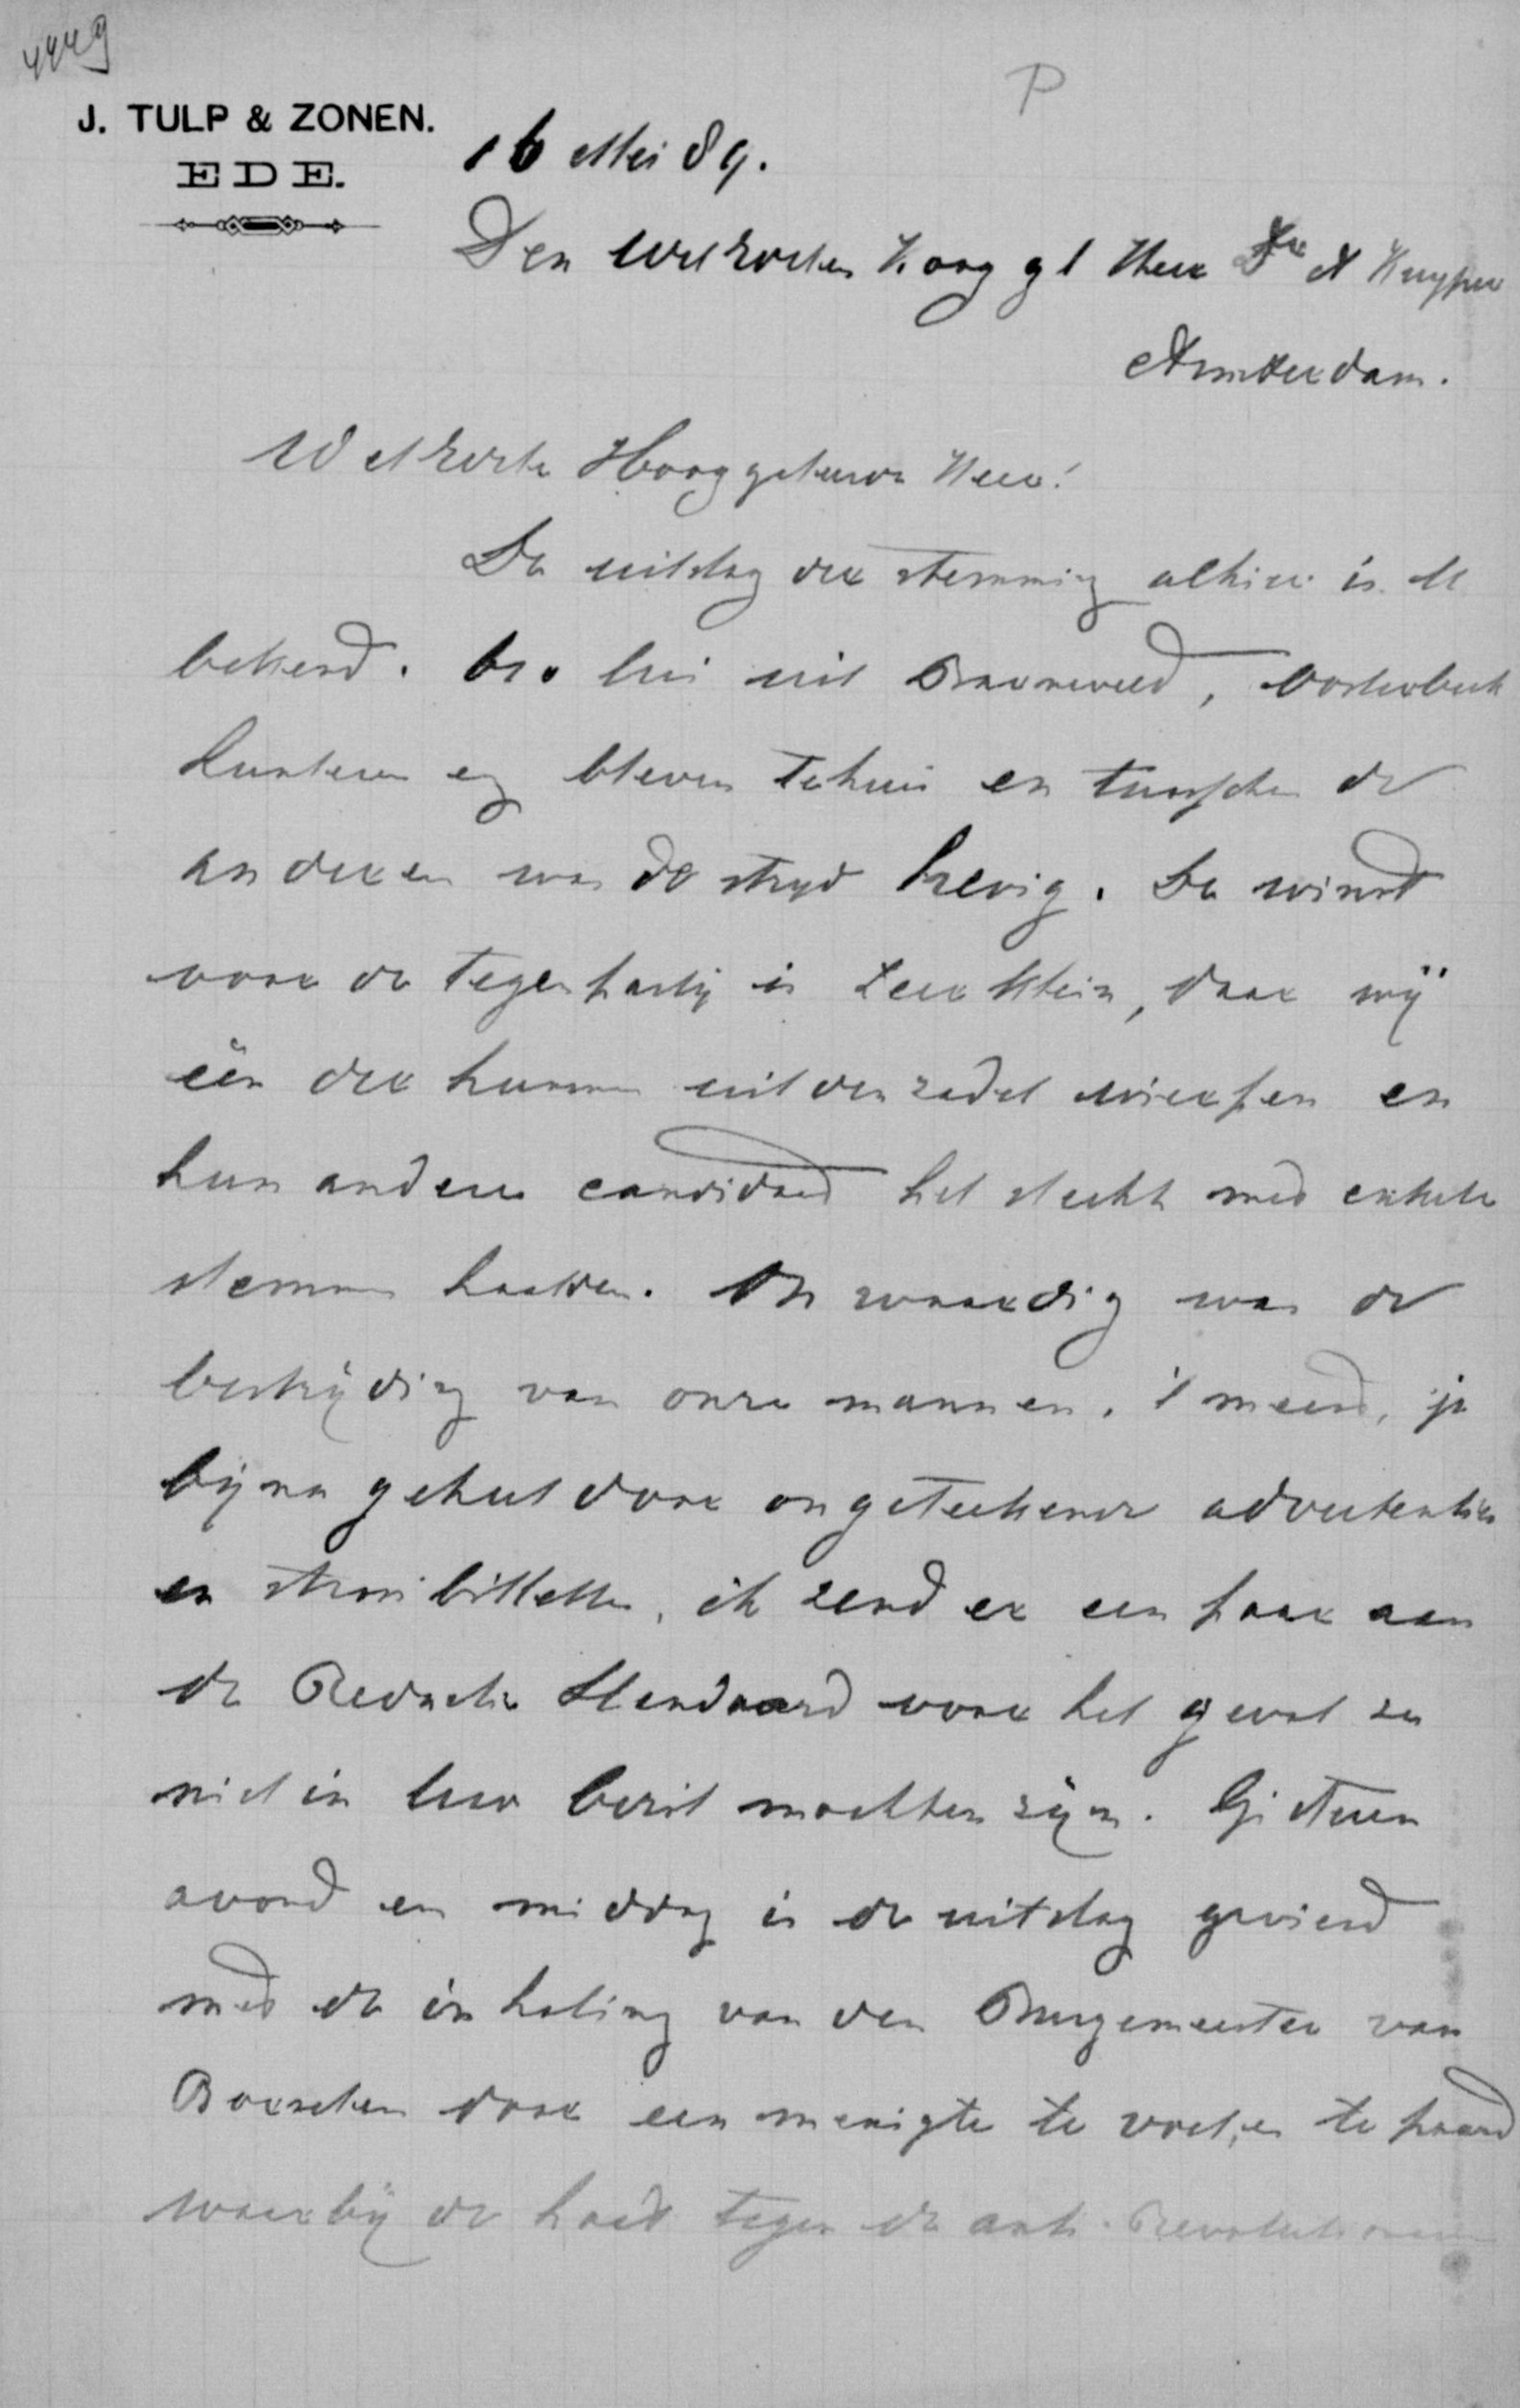 4449
P
J. TULP & ZONEN.
EDE.
16 Mei 89.
Den WelEerw. Hoog gl Heer Dr A Kuyper
Amsterdam.
WelEerw Hooggeleerde Heer!
De uitslag der stemming alhier is U
bekend. Bro lui uit Barneveld, Oosterbeek
Lunteren eg bleven tehuis en tusschen de
anderen was de stryd hevig. De winst
voor de tegenpartij is zeer klein, daar wij
één der hunnen uit den zadel wierpen en
hun andere candidaat het slecht met enkele
stemmen haalden. Onwaardig was de
bestrijding van onze mannen, 't meerd, ja
bijna geheel door ongeteekende advertenties
en strooibilletten, ik zend er een paar aan
de Redactie Standaard voor het geval ze
niet in Uw bezit mochten zijn. Gisteren
avond en middag is de uitslag gevierd
met de inhaling van den Burgemeester van
door een menigte te voet, en te paard
waarbij de haat tegen de anti-Revolutionairen